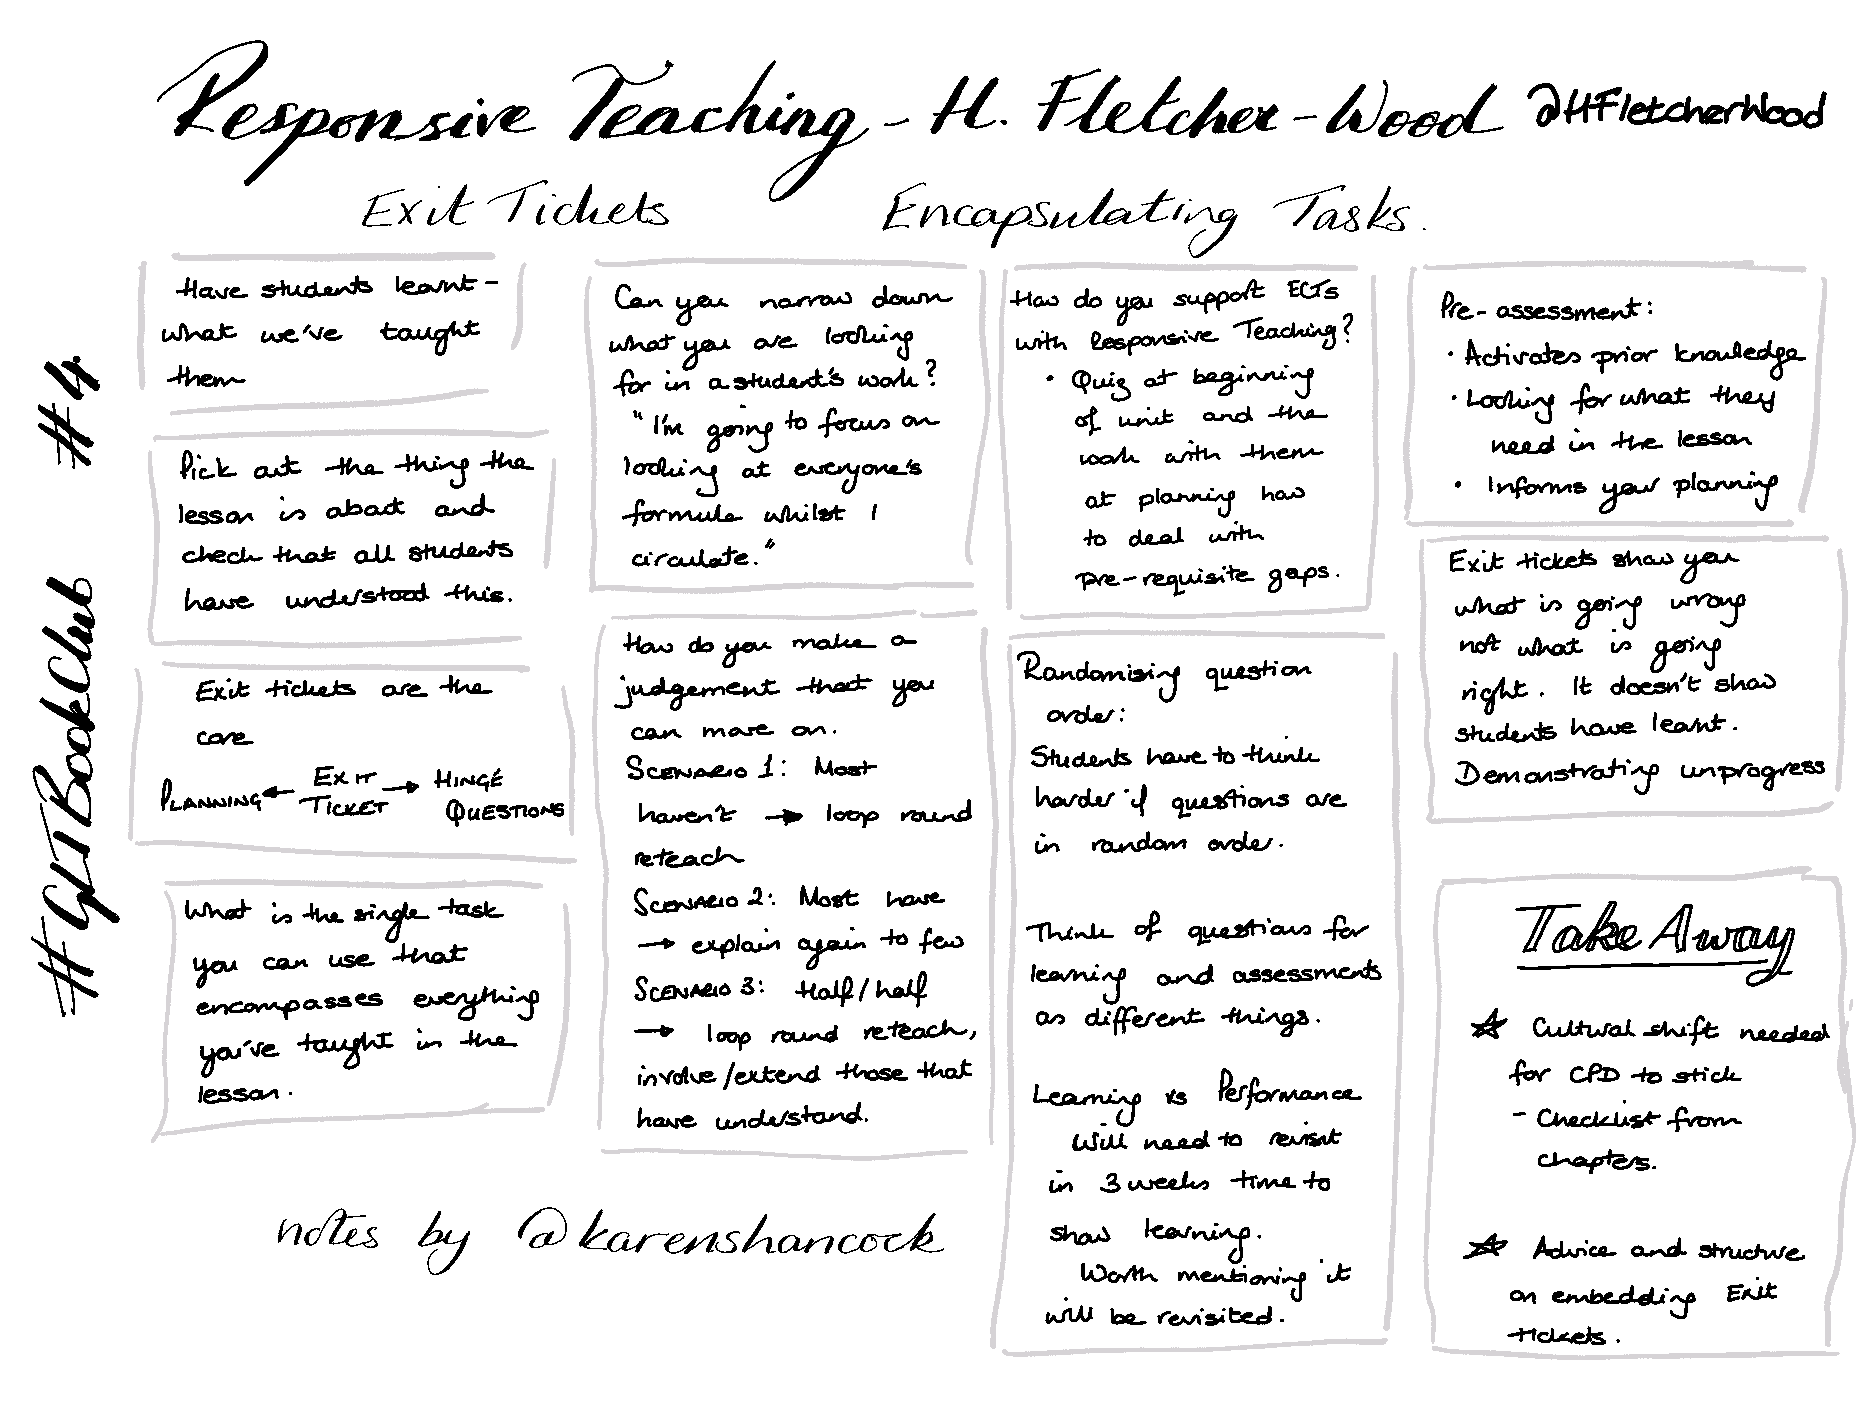 Responsive Teaching - H. Fletcher-Wood @HFletcherWood
Exit Tickets
Encapsulating Tasks.
#GLTBookClub #4
Have students learnt -
what we've taught
them
Pick out the thing the
lesson is about and
check that all students
have understood this.
Exit tickets are the
core
PLANNING ← EXIT TICKET → HINGE QUESTIONS
What is the single task
you can use that
encompasses everything
you've taught in the
lesson.
Can you narrow down
what you are looking
for in a student's work?
"I'm going to focus on
looking at everyone's
formule whilst I
circulate."
How do you make a
judgement that you
can move on.
SCENARIO 1: Most
haven't → loop round
reteach
SCENARIO 2: Most have
→ explain again to few
SCENARIO 3: Half/half
→ loop round reteach,
involve/extend those that
have understand.
How do you support ECTs
with Responsive Teaching?
• Quiz at beginning
of unit and the
work with them
at planning how
to deal with
pre-requisite gaps.
Randomising question
order:
Students have to think
harder if questions are
in random order.
Think of questions for
learning and assessments
as different things.
Learning vs Performance
Will need to revisit
in 3 weeks time to
show learning.
Worth mentioning it
will be revisited.
Pre-assessment:
• Activates prior knowledge
• Looking for what they
need in the lesson
• Informs your planning
Exit tickets show you
what is going wrong
not what is going
right. It doesn't show
students have learnt.
Demonstrating unprogress
Take Away
☆ Cultural shift needed
for CPD to stick
- Checklist from
chapters.
☆ Advice and structure
on embedding Exit
tickets.
notes by @karenshancock